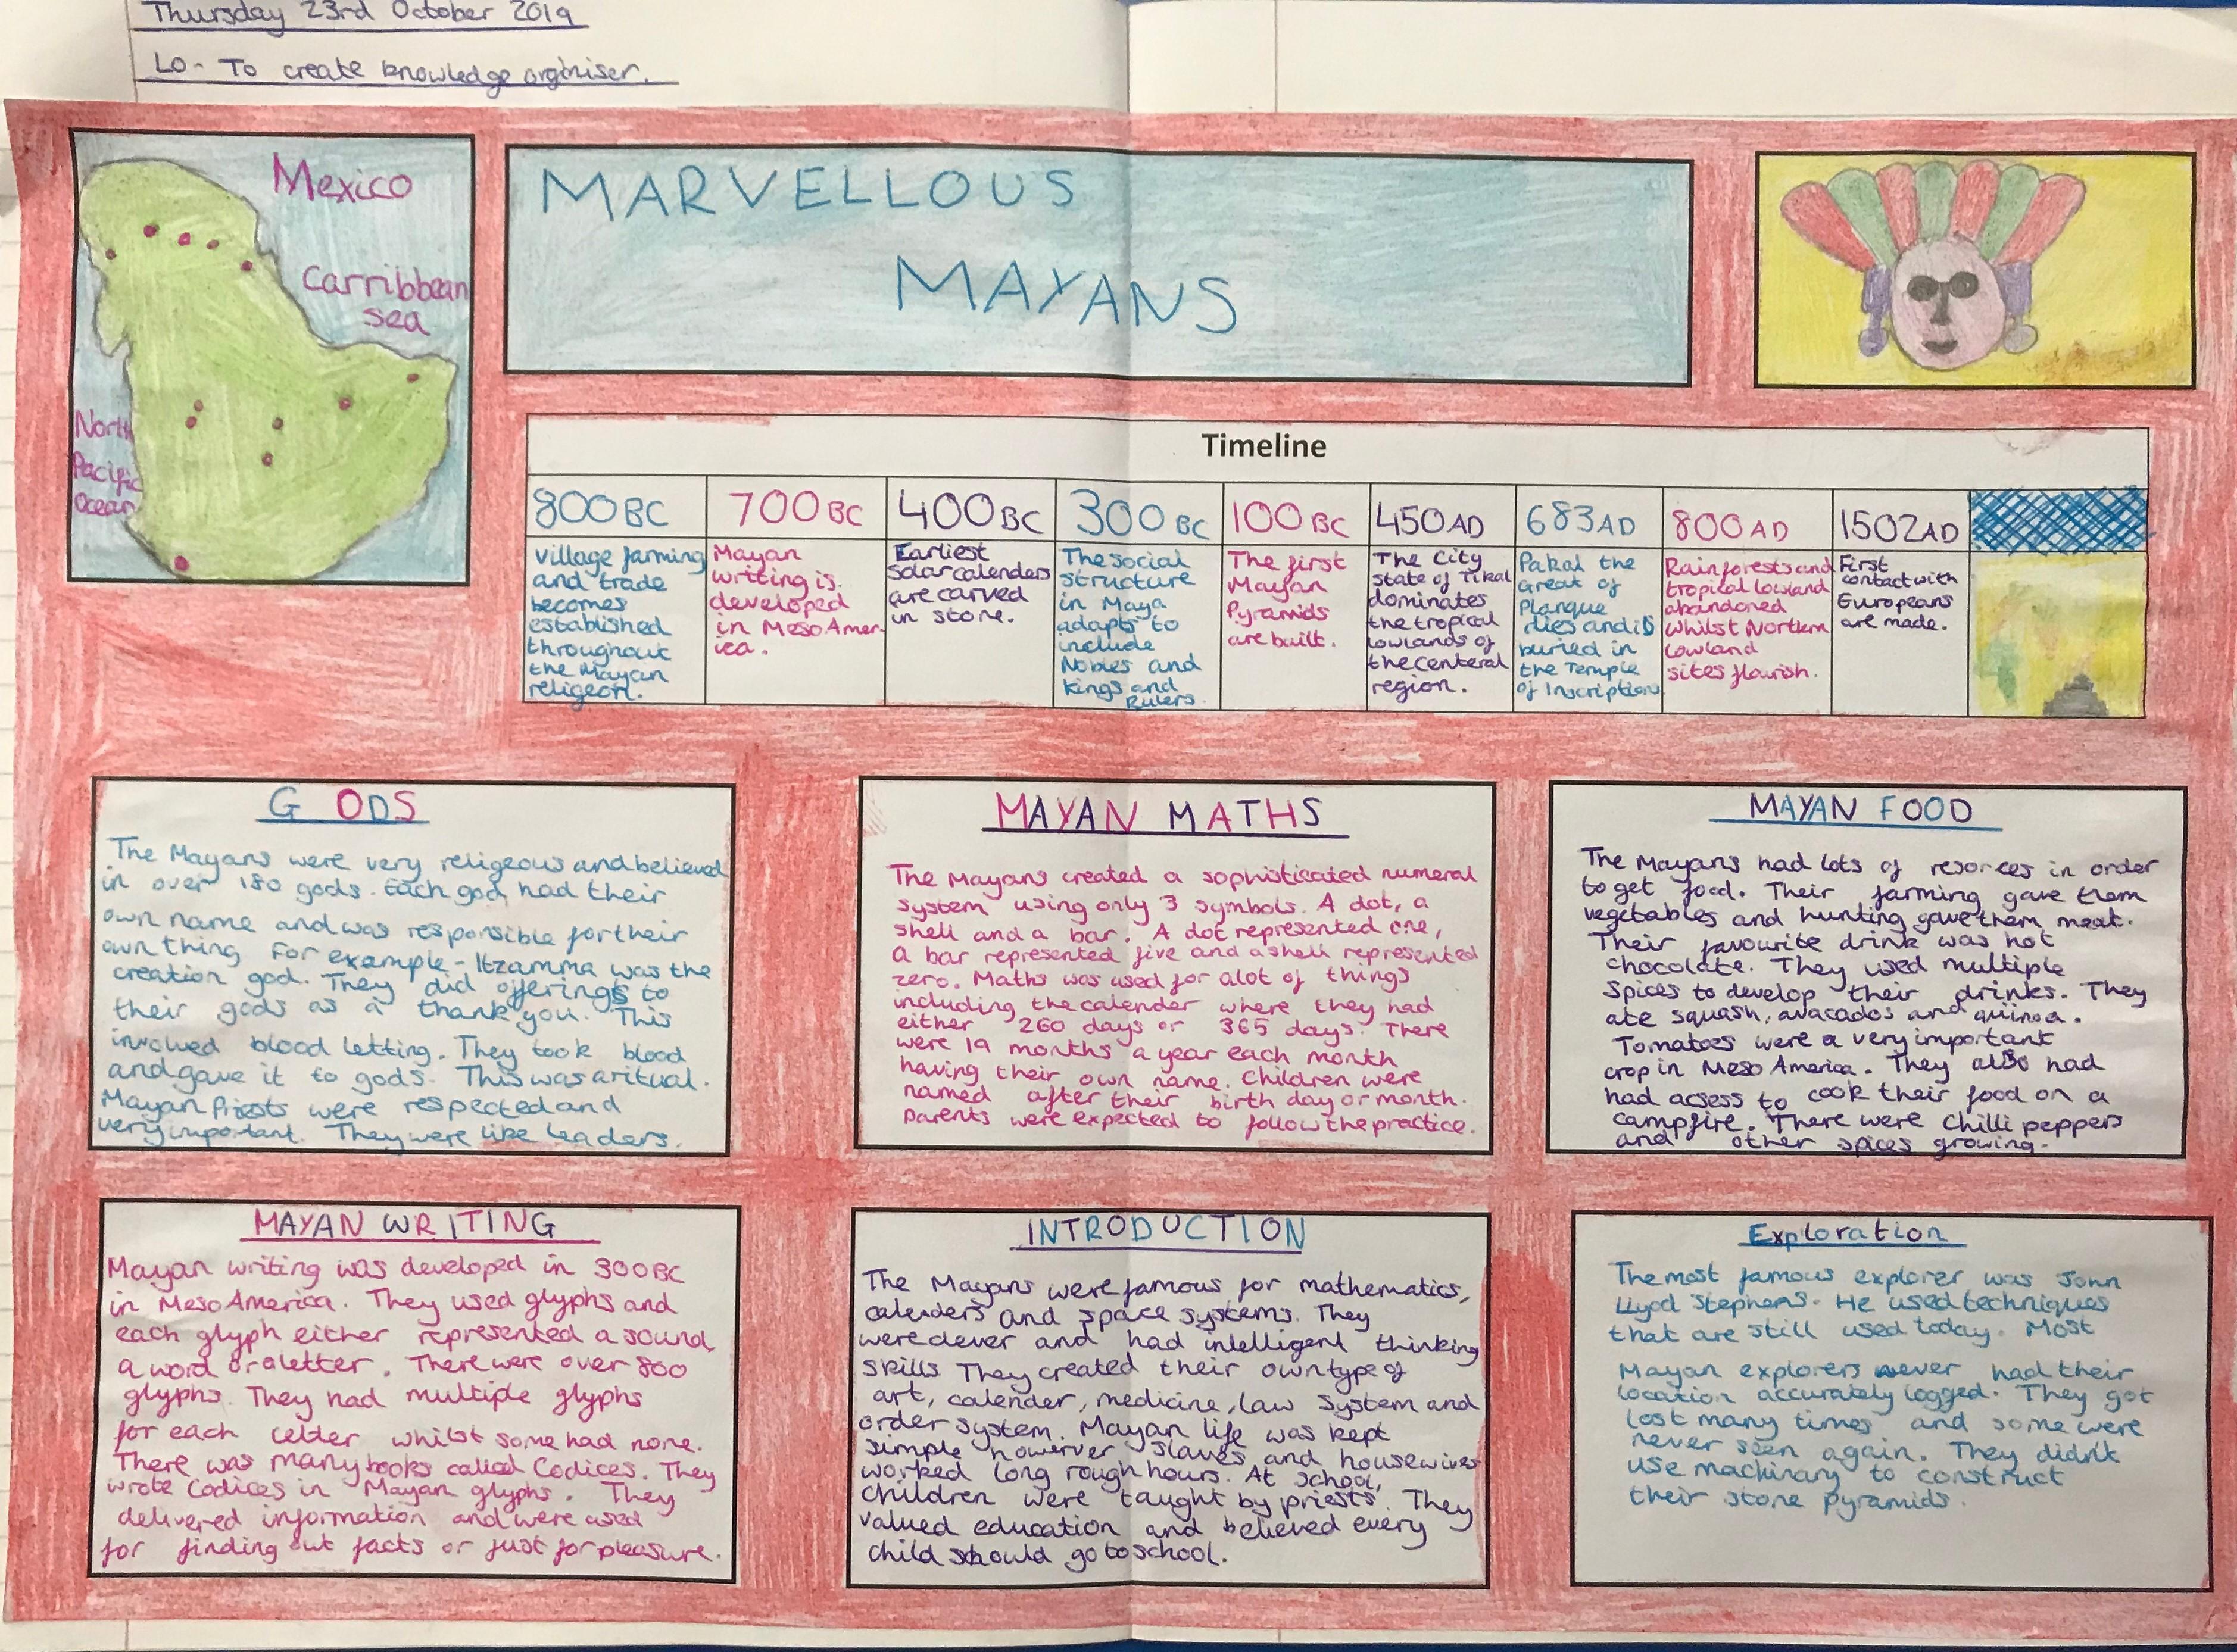 Thursday 23rd October 2019
LO- To create knowledge orginiser.
Mexico
Carribbean
Sea
North
Pacific
Ocean
MARVELLOUS
MAYANS
Timeline
800BC
village farming
and trade
becomes
established
throughout
the Mayan
religeon.
700BC
Mayan
writing is
developed
in MesoAmer-
ica.
400BC
Earliest
Solar calenders
are carved
in stone.
300BC
The social
structure
in Maya
adapts to
include
Nobles and
kings and
Rulers
100BC
The first
Mayan
Pyramids
are built.
450AD
The City
state of Tikal
dominates
the tropical
lowlands of
the centeral
region.
683AD
Pakal the
Great of
Planque
dies and is
buried in
the Temple
of Inscriptions
800AD
Rainforests and
tropical lowland
abandoned
whilst Northern
lowland
sites flourish.
1502AD
First
contact with
Europeans
are made.
GODS
The Mayans were very religeous and believed
in over 150 gods. Each god had their
own name and was responsible for their
own thing For example - Itzamma was the
creation god. They did offerings to
their gods as a thank you. This
involved blood letting. They took blood
and gave it to gods. This was a ritual.
Mayan Priests were respected and
very important. They were like leaders.
MAYAN MATHS
The Mayans created a sophisticated numeral
system using only 3 symbols. A dot, a
shell and a bar. A dot represented one,
A bar represented five and a shell represented
zero. Maths was used for alot of things
including the calender where they had
either 260 days or 365 days. There
were 19 months a year each month
having their own name. Children were
named after their birth day or month.
Parents were expected to follow the practice.
MAYAN FOOD
The Mayans had lots of resorces in order
to get food. Their farming gave them
vegetables and hunting gave them meat.
Their favourite drink was hot
chocolate. They used multiple
spices to develop their drinks. They
ate squash, avacados and quinoa.
Tomatoes were a very important
crop in Meso America. They also had
had acsess to cook their food on a
campfire. There were Chilli peppers
and other spices growing.
MAYAN WRITING
Mayan writing was developed in 300BC
in MesoAmerica. They used glyphs and
each glyph either represented a sound
a word or a letter. There were over 800
glyphs. They had multiple glyphs
for each letter whilst some had none.
There was many books called Codices. They
wrote Codices in Mayan glyphs. They
delivered information and were used
for finding out facts or just for pleasure.
INTRODUCTION
The Mayans were famous for mathematics,
calenders and space systems. They
were clever and had intelligent thinking
skills They created their own type of
art, calender, medicine, law system and
order system. Mayan life was kept
simple howerver slaves and housewives
worked long rough hours. At school,
children were taught by priests. They
valued education and believed every
child should go to school.
Exploration
The most famous explorer was John
Llyod Stephens. He used techniques
that are still used today. Most
Mayan explorers never had their
location accurately logged. They got
lost many times and some were
never seen again. They didn't
use machinary to construct
their stone pyramids.